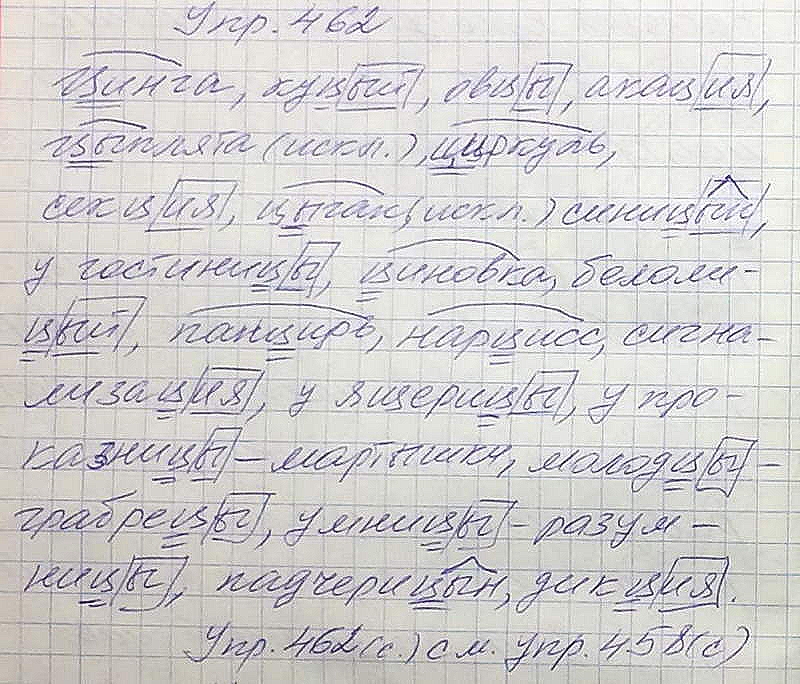 Упр. 462
Цинга, куцый, овцы, акация,
цыплята (искл.), циркуль,
секция, цыган (искл.) синицын,
у гостиницы, циновка, белоли-
цый, панцирь, нарцисс, сигна-
лизация, у ящерицы, у про-
казницы - мартышки, молодцы -
храбрецы, умницы - разум -
ницы, падчерицын, дикция.
Упр. 462(с.) см. упр. 458(с)